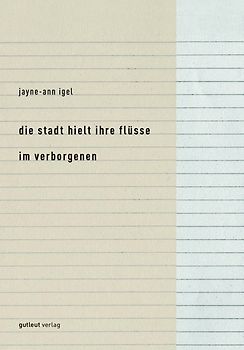 jayne-ann igel
die stadt hielt ihre flüsse
im verborgenen
gutleut verlag